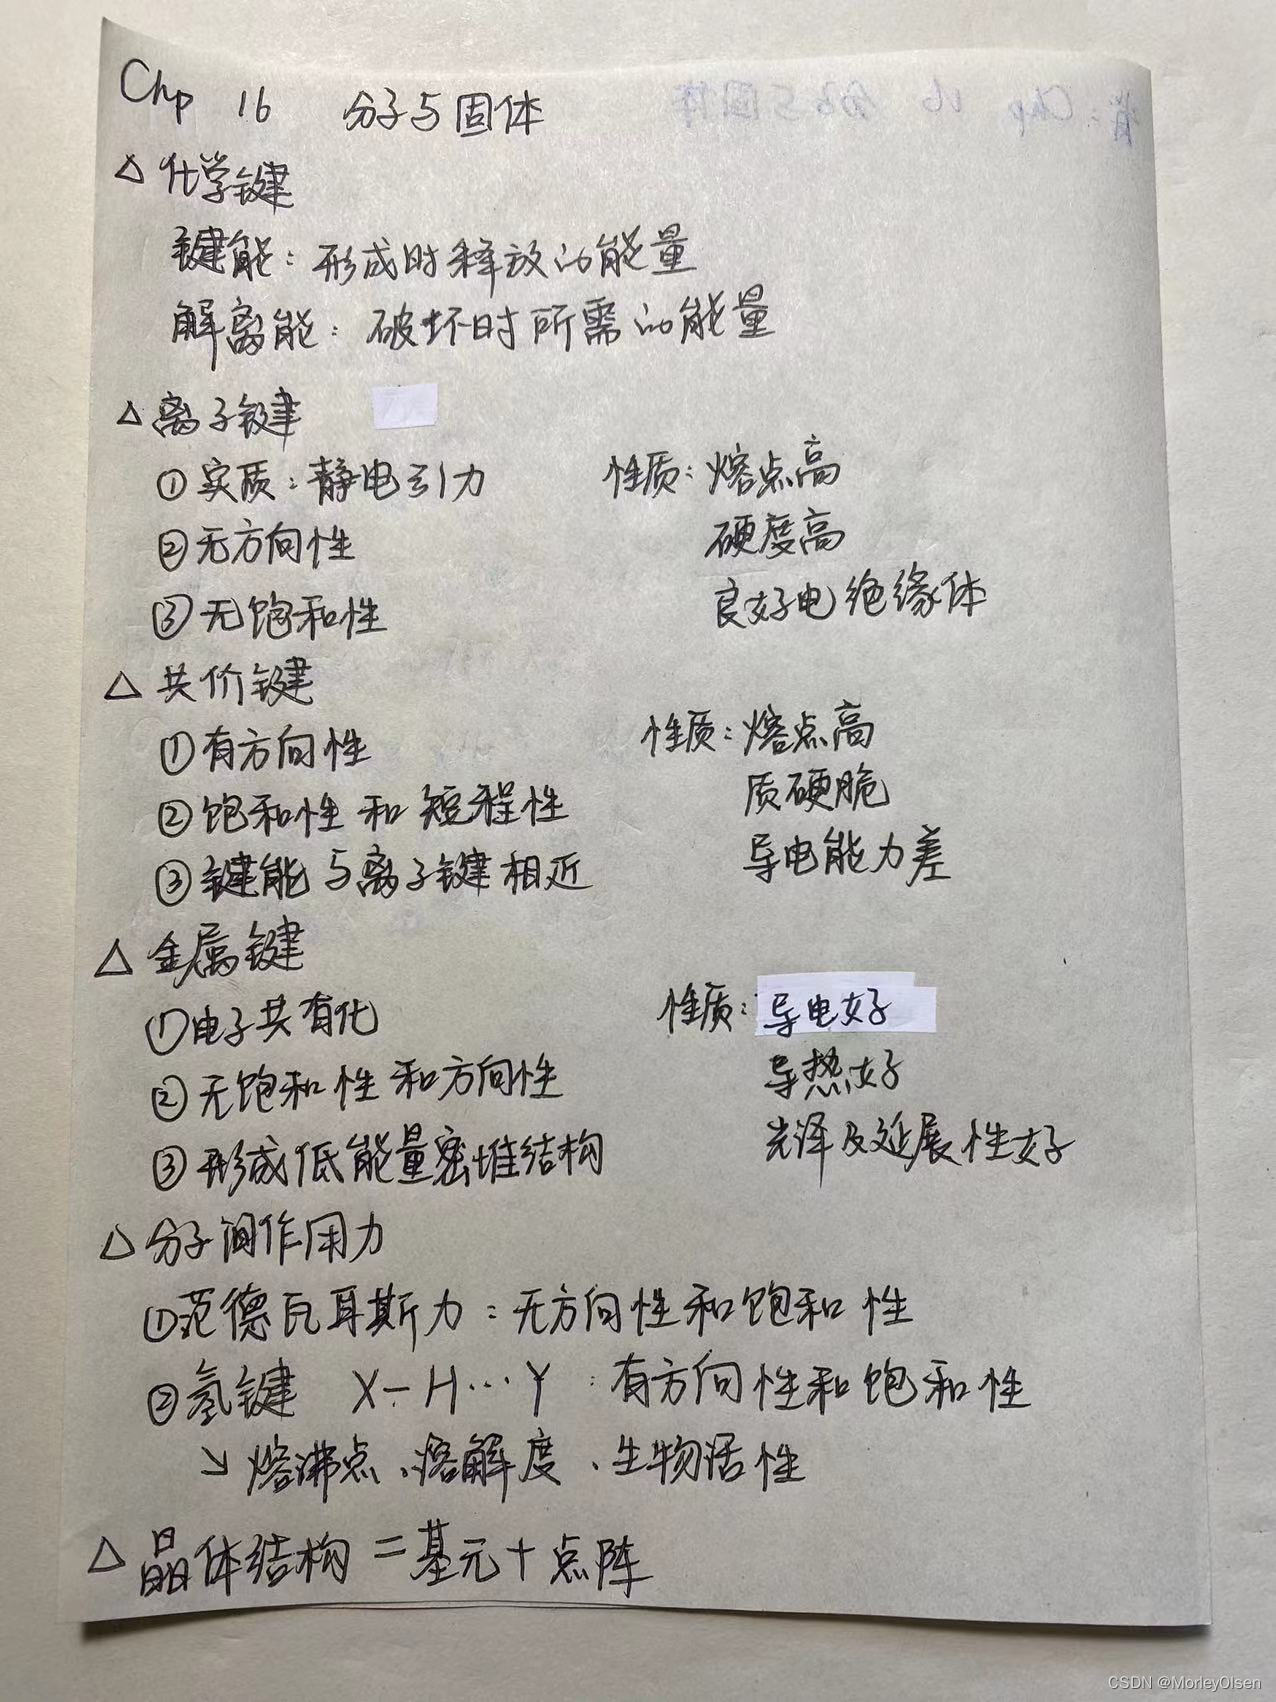 Chp 16 分子与固体
△ 化学键
键能：形成时释放的能量
解离能：破坏时所需的能量
△ 离子键
① 实质：静电引力 性质：熔点高
② 无方向性 硬度高
③ 无饱和性 良好电绝缘体
△ 共价键
① 有方向性 性质：熔点高
② 饱和性和短程性 质硬脆
③ 键能与离子键相近 导电能力差
△ 金属键
① 电子共有化 性质：导电好
② 无饱和性和方向性 导热好
③ 形成低能量密堆结构 光泽及延展性好
△ 分子间作用力
① 范德瓦耳斯力：无方向性和饱和性
② 氢键 X－H…Y：有方向性和饱和性
↘ 熔沸点、溶解度、生物活性
△ 晶体结构＝基元＋点阵
CSDN @MorleyOlsen